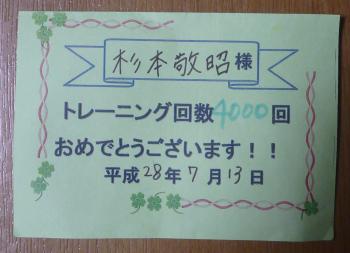 杉本敬昭様
トレーニング回数4000回
おめでとうございます！！
平成28年7月13日